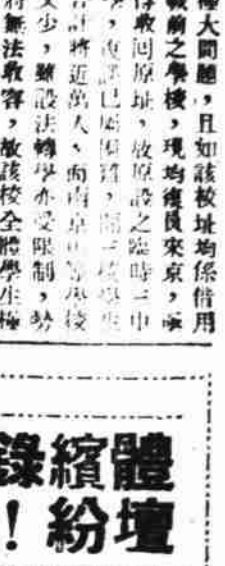 極大問題，且如該校址均係借用
戰前之學校，現均復員來京，亟
存收回原址，故原設之臨時一中
學，復課已屬
合計將近萬人，而南京中等學校
又少，雖設法轉學亦受限制，勢
將無法收容，故該校全體學生極
體壇
繽紛
錄！